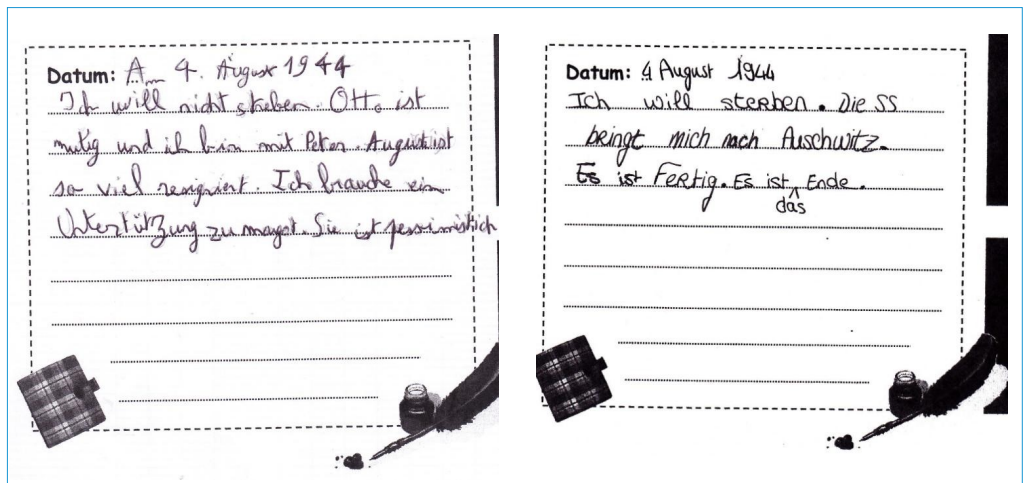 Datum: Am 4. August 1944
Ich will nicht streben. Otto ist
mutig und ich bin mit Peter. August ist
so viel resigniert. Ich brauche ein
Unterstützung zu margot. Sie ist pessimistich
Datum: 4 August 1944
Ich will sterben. Die SS
bringt mich nach Auschwitz.
Es ist Fertig. Es ist Ende.
das